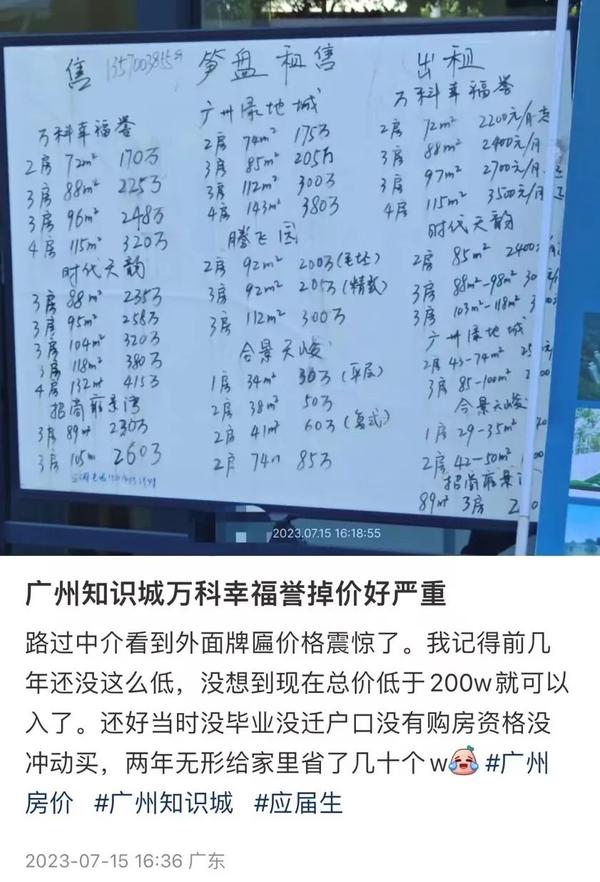 售 筍盘租售 出租
万科幸福誉
2房 72m² 170万
3房 88m² 225万
3房 96m² 248万
4房 115m² 320万
时代天韵
3房 88m² 235万
3房 95m² 258万
3房 104m² 320万
3房 118m² 380万
4房 132m² 415万
招商雍景湾
3房 89m² 230万
3房 105m² 260万
广州绿地城
2房 74m² 175万
3房 85m² 205万
3房 112m² 300万
4房 143m² 380万
腾飞园
2房 92m² 200万(毛坯)
3房 92m² 205万(精装)
3房 112m² 300万
合景天峻
1房 34m² 30万(平层)
2房 38m² 50万
2房 41m² 60万(复式)
2房 74m 85万
万科幸福誉
2房 72m² 2200元/月起
3房 88m² 2400元/月
3房 97m² 2700元/月
4房 115m² 3500元/月
时代天韵
2房 85m² 2400
3房 88m²-98m²
3房 103m²-118m²
广州绿地城
2房 43-74m²
3房 85-100m²
合景天峻
1房 29-35m²
2房 42-50m²
招商雍景
89m² 3房
2023.07.15 16:18:55
广州知识城万科幸福誉掉价好严重
路过中介看到外面牌匾价格震惊了。我记得前几
年还没这么低，没想到现在总价低于200w就可以
入了。还好当时没毕业没迁户口没有购房资格没
冲动买，两年无形给家里省了几十个w #广州
房价 #广州知识城 #应届生
2023-07-15 16:36 广东